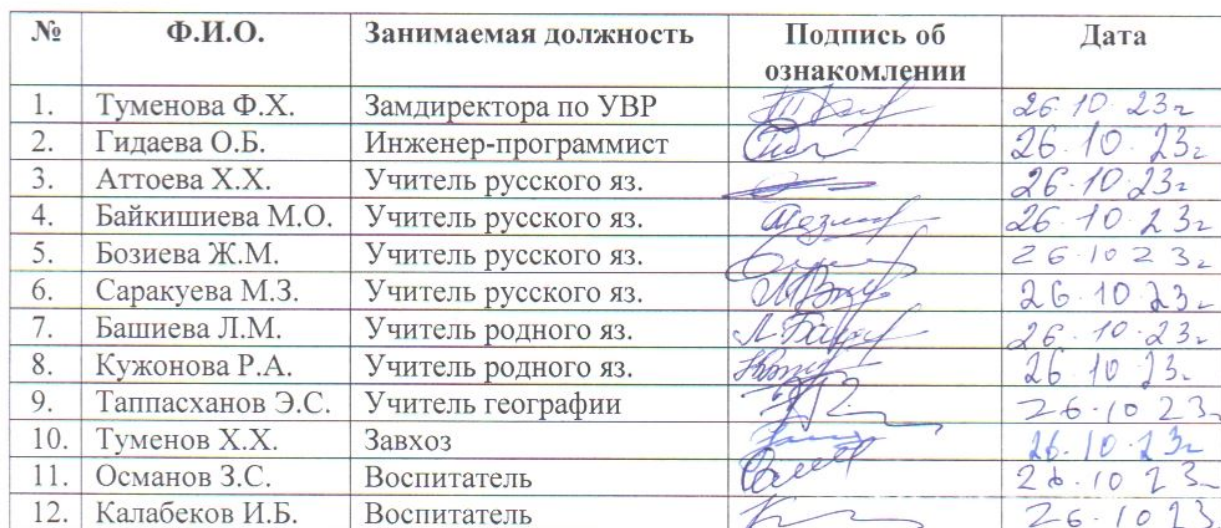 № Ф.И.О. Занимаемая должность Подпись об ознакомлении Дата
1. Туменова Ф.Х. Замдиректора по УВР 26.10.23г
2. Гидаева О.Б. Инженер-программист 26.10.23г
3. Аттоева Х.Х. Учитель русского яз. 26.10.23г
4. Байкишиева М.О. Учитель русского яз. 26.10.23г
5. Бозиева Ж.М. Учитель русского яз. 26.10 23г
6. Саракуева М.З. Учитель русского яз. 26.10.23г
7. Башиева Л.М. Учитель родного яз. 26.10.23г
8. Кужонова Р.А. Учитель родного яз. 26.10 23г
9. Таппасханов Э.С. Учитель географии 26.10 23г
10. Туменов Х.Х. Завхоз 26.10.23г
11. Османов З.С. Воспитатель 26.10 23г
12. Калабеков И.Б. Воспитатель 26.10 23